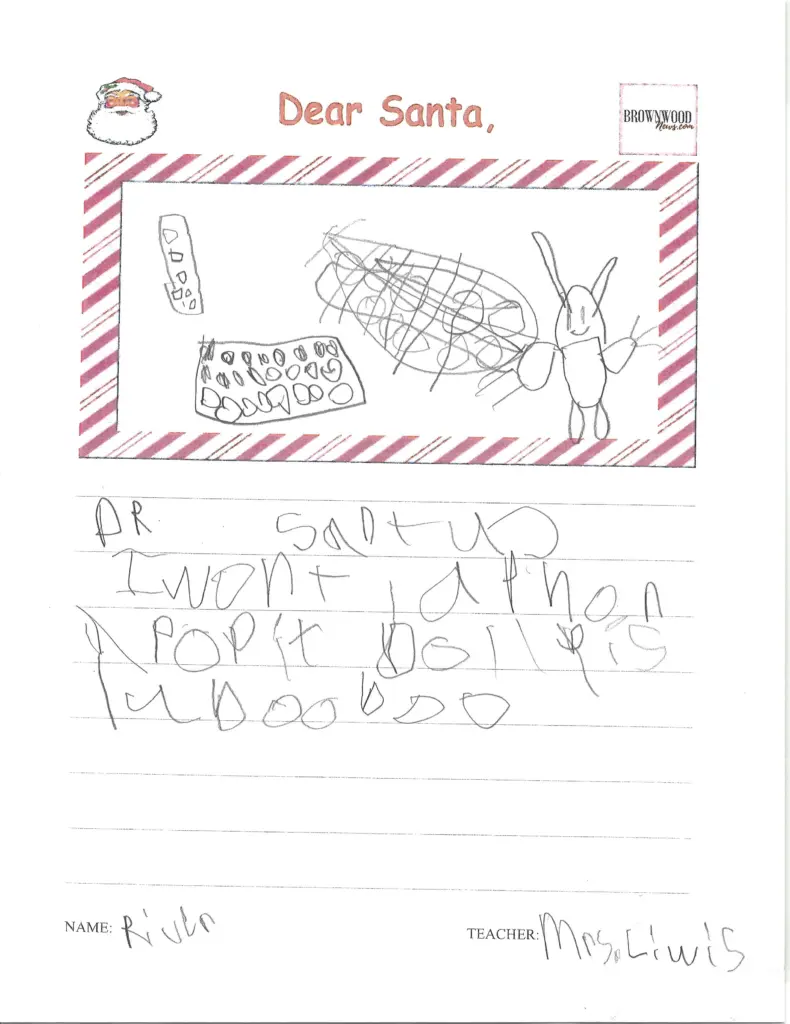 Dear Santa,
BROWNWOOD
News.com
DR Santu
I wont a Phon
A POP it Doll P is
LuBooboo
NAME: River
TEACHER: Mrs. Liwis